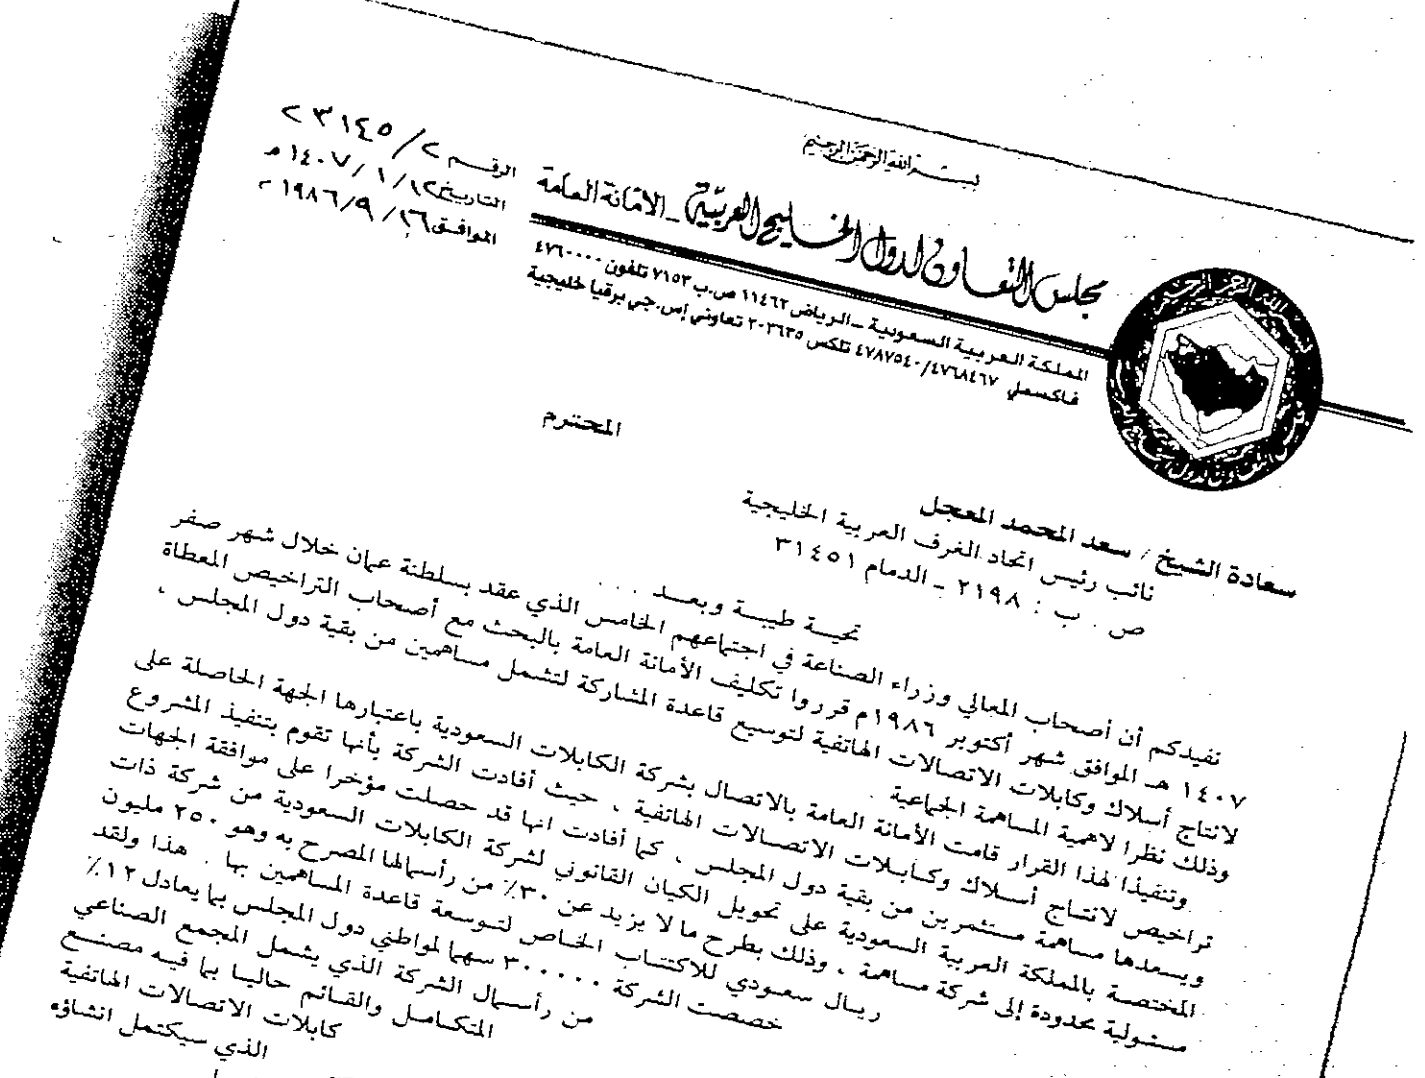 بسم الله الرحمن الرحيم
مجلس التعاون لدول الخليج العربية - الأمانة العامة
المملكة العربية السعودية - الرياض ١١٤٦٢ ص.ب ٧١٥٣ تلفون ٤٧٦٠٠٠٠
فاكسملي ٤٧٨٧٥٤٠/٤٧٦٨٤٦٧ تلكس ٢٠٣٦٣٥ تعاوني إس.جي برقيا خليجية
الرقم ٢/٢٣١٤٥
التاريخ ١٤٠٧/١/١٢ هـ
الموافق ١٩٨٦/٩/١٦
المحترم
سعادة الشيخ / سعد المحمد المعجل
نائب رئيس اتحاد الغرف العربية الخليجية
ص . ب : ٢١٩٨ - الدمام ٣١٤٥١
تحية طيبة وبعد ...
نفيدكم أن أصحاب المعالي وزراء الصناعة في اجتماعهم الخامس الذي عقد بسلطنة عمان خلال شهر صفر
١٤٠٧ هـ الموافق شهر أكتوبر ١٩٨٦م قرروا تكليف الأمانة العامة بالبحث مع أصحاب التراخيص المعطاة
لانتاج أسلاك وكابلات الاتصالات الهاتفية لتوسيع قاعدة المشاركة لتشمل مساهمين من بقية دول المجلس ،
وذلك نظرا لاهمية المساهمة الجماعية .
وتنفيذا لهذا القرار قامت الأمانة العامة بالاتصال بشركة الكابلات السعودية باعتبارها الجهة الحاصلة على
تراخيص لانتاج أسلاك وكابلات الاتصالات الهاتفية ، حيث أفادت الشركة بأنها تقوم بتنفيذ المشروع
ويسعدها مساهمة مستثمرين من بقية دول المجلس ، كما أفادت انها قد حصلت مؤخرا على موافقة الجهات
المختصة بالمملكة العربية السعودية على تحويل الكيان القانوني لشركة الكابلات السعودية من شركة ذات
مسئولية محدودة إلى شركة مساهمة ، وذلك بطرح ما لا يزيد عن ٣٠٪ من رأسمالها المصرح به وهو ٢٥٠ مليون
ريال سعودي للاكتتاب الخاص لتوسعة قاعدة المساهمين بها . هذا ولقد
خصصت الشركة ٣٠٠٠٠٠ سهما لمواطني دول المجلس بما يعادل ١٢٪
من رأسمال الشركة الذي يشمل المجمع الصناعي
المتكامل والقائم حاليا بما فيه مصنع
كابلات الاتصالات الهاتفية
الذي سيكتمل انشاؤه